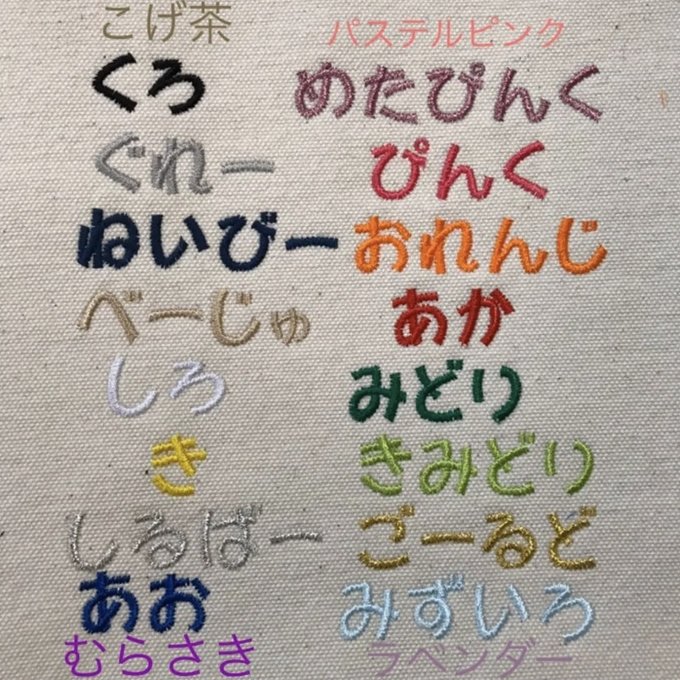 こげ茶 パステルピンク
くろ めたぴんく
ぐれー ぴんく
ねいびー おれんじ
べーじゅ あか
しろ みどり
き きみどり
しるばー ごーるど
あお みずいろ
むらさき ラベンダー